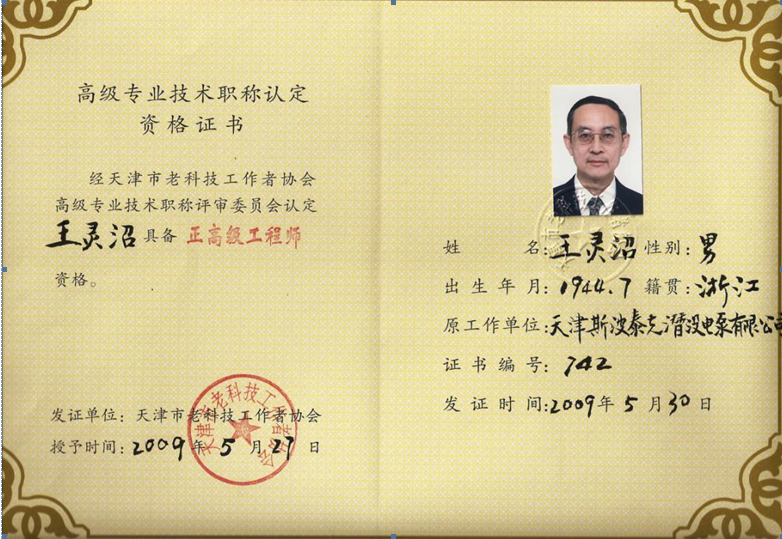 高级专业技术职称认定
资格证书
经天津市老科技工作者协会
高级专业技术职称评审委员会认定
王灵沼 具备 正高级工程师
资格。
发证单位: 天津市老科技工作者协会
授予时间: 2009 年 5 月 27 日
天津市老科技工作者协会
姓 名: 王灵沼 性别: 男
出生年月: 1944.7 籍贯: 浙江
原工作单位: 天津斯波泰克潜没电泵有限公司
证书编号: 742
发证时间: 2009 年 5 月 30 日